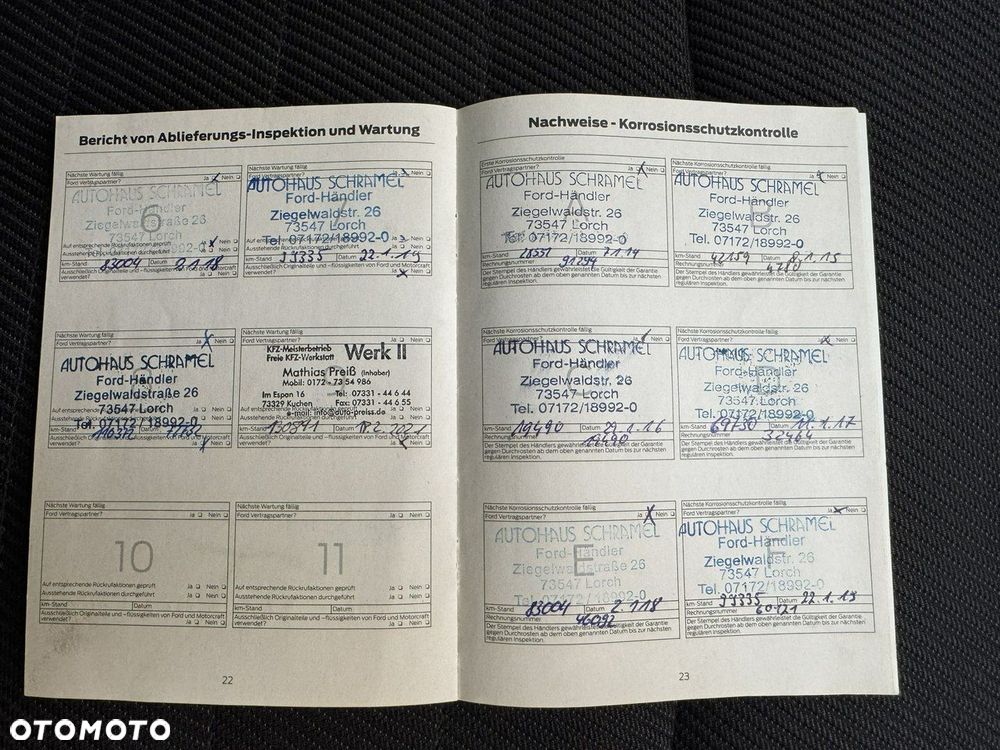 Bericht von Ablieferungs-Inspektion und Wartung
Nächste Wartung fällig
Ford Vertragspartner? Ja Nein
AUTOHAUS SCHRAMEL
6
Ford-Händler
Ziegelwaldstraße 26
73547 Lorch
Auf entsprechende Rückrufaktionen geprüft
Ausstehende Rückrufaktionen durchgeführt Ja Nein
km-Stand 83004 Datum 2.1.18
Ausschließlich Originalteile und -flüssigkeiten von Ford und Motorcraft
verwendet? Ja Nein
Nächste Wartung fällig
AUTOHAUS SCHRAMEL
7
Ford-Händler
Ziegelwaldstr. 26
73547 Lorch
Tel. 07172/18992-0
Ausstehende Rückrufaktionen durchgeführt Ja Nein
km-Stand 99335 Datum 22.1.19
Ausschließlich Originalteile und -flüssigkeiten von Ford und Motorcraft
verwendet? Ja Nein
Nächste Wartung fällig
Ford Vertragspartner? Ja Nein
AUTOHAUS SCHRAMEL
Ford-Händler
Ziegelwaldstraße 26
73547 Lorch
Tel. 07172/18992-0
km-Stand 116372 Datum
Ausschließlich Originalteile und -flüssigkeiten von Ford und Motorcraft
verwendet? Ja Nein
Nächste Wartung fällig
Ford Vertragspartner? Ja Nein
KFZ-Meisterbetrieb
Freie KFZ-Werkstatt Werk II
Mathias Preiß (Inhaber)
Mobil: 0172 - 73 54 986
Im Espan 16 Tel: 07331 - 44 6 44
73329 Kuchen Fax: 07331 - 44 6 55
e-mail: info@auto-preiss.de
km-Stand 130941 Datum 18.2.2021
Ausschließlich Originalteile und -flüssigkeiten von Ford und Motorcraft
verwendet? Ja Nein
Nächste Wartung fällig
Ford Vertragspartner? Ja Nein
10
Auf entsprechende Rückrufaktionen geprüft Ja Nein
Ausstehende Rückrufaktionen durchgeführt Ja Nein
km-Stand Datum
Ausschließlich Originalteile und -flüssigkeiten von Ford und Motorcraft
verwendet? Ja Nein
Nächste Wartung fällig
Ford Vertragspartner? Ja Nein
11
Auf entsprechende Rückrufaktionen geprüft Ja Nein
Ausstehende Rückrufaktionen durchgeführt Ja Nein
km-Stand Datum
Ausschließlich Originalteile und -flüssigkeiten von Ford und Motorcraft
verwendet? Ja Nein
22
Nachweise - Korrosionsschutzkontrolle
Erste Korrosionsschutzkontrolle
Ford Vertragspartner? Ja Nein
AUTOHAUS SCHRAMEL
A
Ford-Händler
Ziegelwaldstr. 26
73547 Lorch
Tel. 07172/18992-0
km-Stand Datum
Rechnungsnummer 91294
Der Stempel des Händlers gewährleistet die Gültigkeit der Garantie
gegen Durchrosten ab dem oben genannten Datum bis zur nächsten
regulären Inspektion.
Nächste Korrosionsschutzkontrolle fällig
Ford Vertragspartner? Ja Nein
AUTOHAUS SCHRAMEL
B
Ford-Händler
Ziegelwaldstr. 26
73547 Lorch
Tel. 07172/18992-0
km-Stand 42159 Datum 8.1.15
Rechnungsnummer 4780
Der Stempel des Händlers gewährleistet die Gültigkeit der Garantie
gegen Durchrosten ab dem oben genannten Datum bis zur nächsten
regulären Inspektion.
Nächste Korrosionsschutzkontrolle fällig
Ford Vertragspartner? Ja Nein
AUTOHAUS SCHRAMEL
C
Ford-Händler
Ziegelwaldstr. 26
73547 Lorch
Tel. 07172/18992-0
km-Stand 19490 Datum
Rechnungsnummer 19490
Der Stempel des Händlers gewährleistet die Gültigkeit der Garantie
gegen Durchrosten ab dem oben genannten Datum bis zur nächsten
regulären Inspektion.
Nächste Korrosionsschutzkontrolle fällig
Ford Vertragspartner? Ja Nein
AUTOHAUS SCHRAMEL
D
Ford-Händler
Ziegelwaldstr. 26
73547 Lorch
Tel. 07172/18992-0
km-Stand 69730 Datum 11.1.17
Rechnungsnummer 32464
Der Stempel des Händlers gewährleistet die Gültigkeit der Garantie
gegen Durchrosten ab dem oben genannten Datum bis zur nächsten
regulären Inspektion.
Nächste Korrosionsschutzkontrolle fällig
Ford Vertragspartner? Ja Nein
AUTOHAUS SCHRAMEL
E
Ford-Händler
Ziegelwaldstraße 26
73547 Lorch
Tel. 07172/18992-0
km-Stand 83004 Datum 2.1.18
Rechnungsnummer 46092
Der Stempel des Händlers gewährleistet die Gültigkeit der Garantie
gegen Durchrosten ab dem oben genannten Datum bis zur nächsten
regulären Inspektion.
Nächste Korrosionsschutzkontrolle fällig
Ford Vertragspartner? Ja Nein
AUTOHAUS SCHRAMEL
F
Ford-Händler
Ziegelwaldstr. 26
73547 Lorch
Tel. 07172/18992-0
km-Stand 99335 Datum 22.1.19
Rechnungsnummer 60121
Der Stempel des Händlers gewährleistet die Gültigkeit der Garantie
gegen Durchrosten ab dem oben genannten Datum bis zur nächsten
regulären Inspektion.
23
OTOMOTO